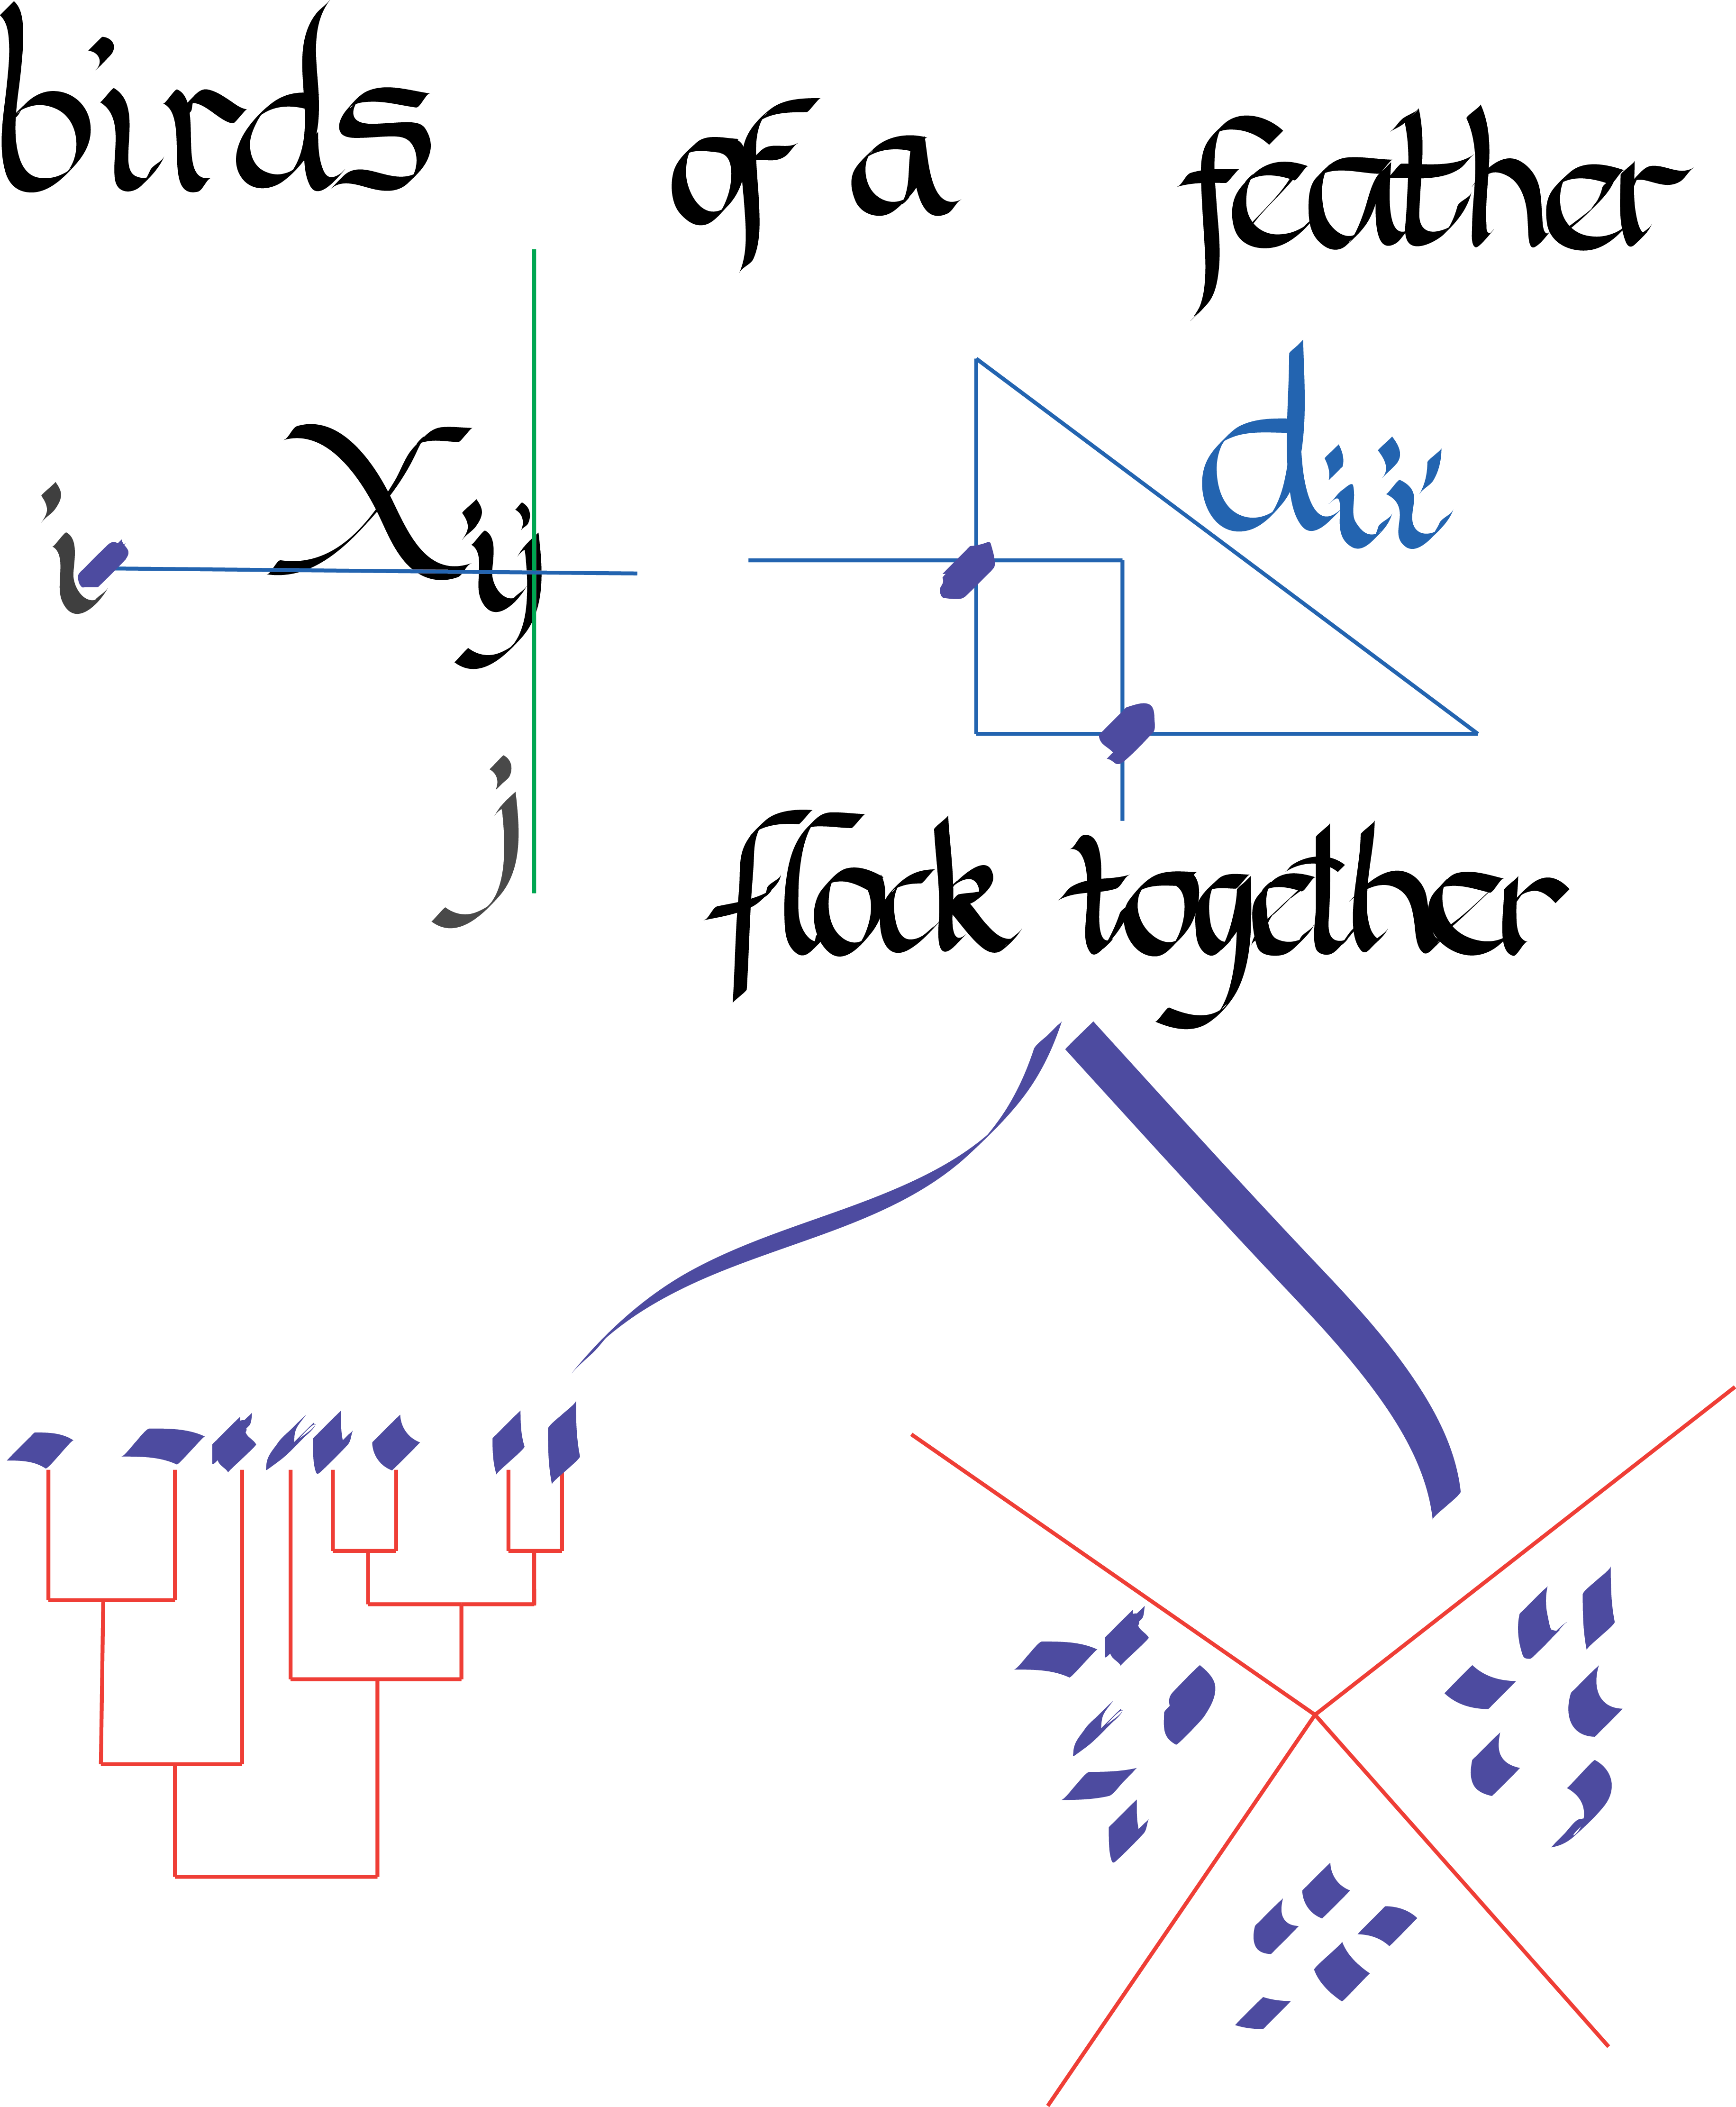 birds of a feather
i Xij dii'
j
flock together